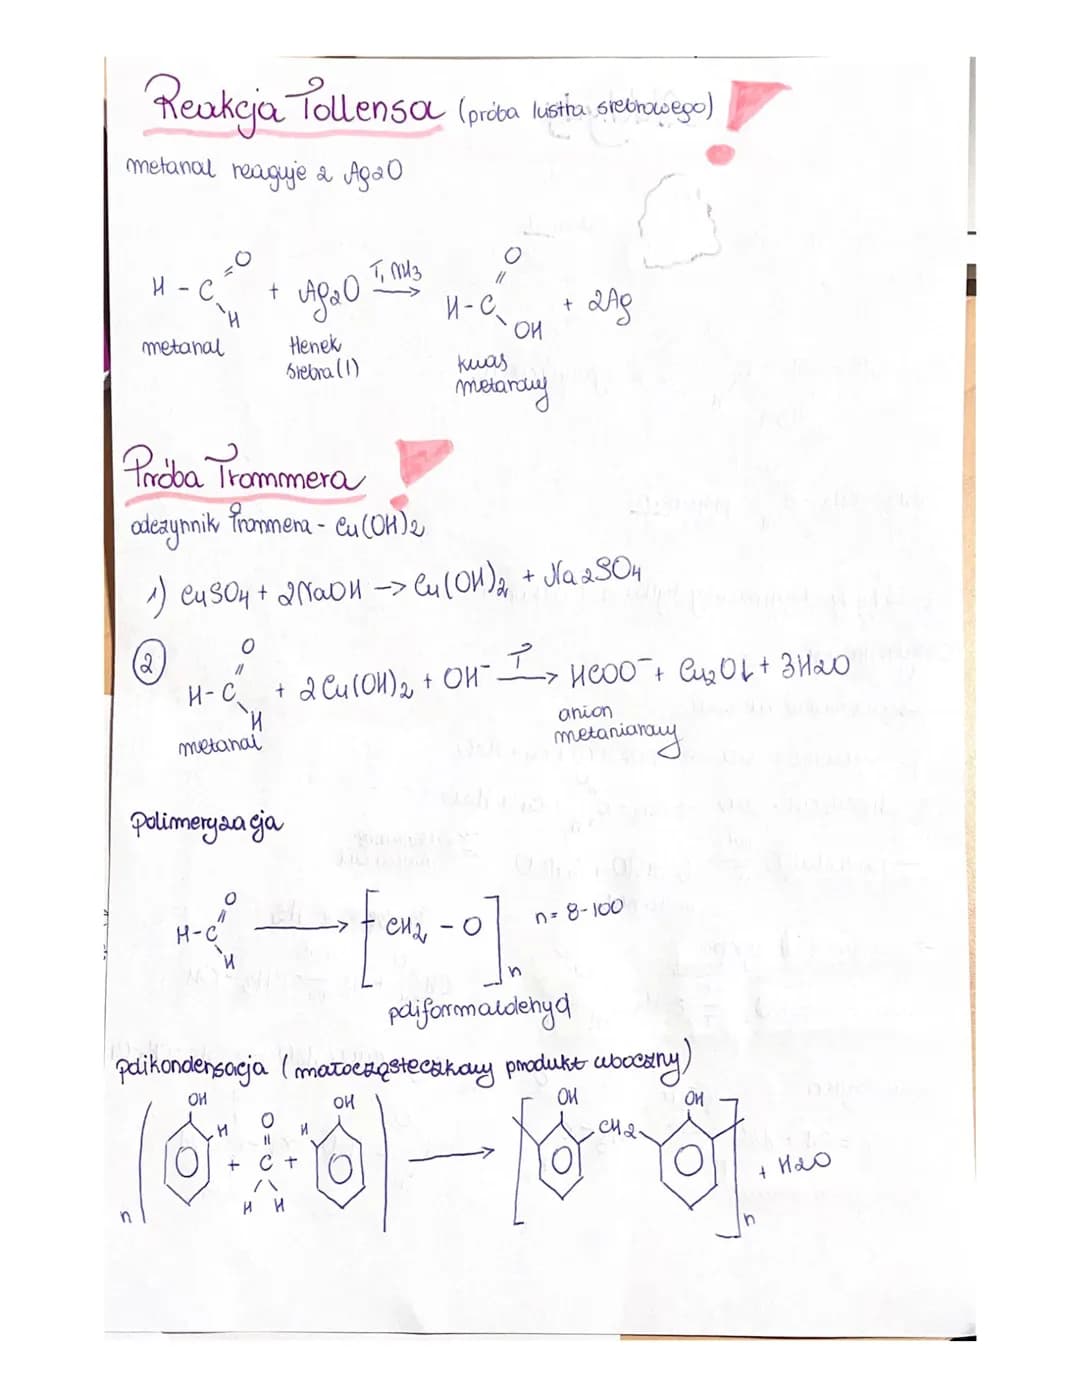 Reakcja Tollensa (próba lustra srebrowego)
metanal reaguje z Ag2O
H - C =O H + Ag2O T, NH3 → H - C =O OH + 2Ag
metanal tlenek srebra (I) kwas metanowy
Próba Trommera
odczynnik Trommera - Cu(OH)2
1) CuSO4 + 2NaOH -> Cu(OH)2 + Na2SO4
2 H - C =O H + 2Cu(OH)2 + OH⁻ T → HCOO⁻ + Cu2O↓ + 3H2O
metanal anion metanianowy
polimeryzacja
H - C =O H → [CH2 - O]n n = 8-100
poliformaldehyd
polikondensacja (małocząsteczkowy produkt uboczny)
OH OH OH OH
H O H CH2
n ( + C + ) → [ ]n + H2O
H H